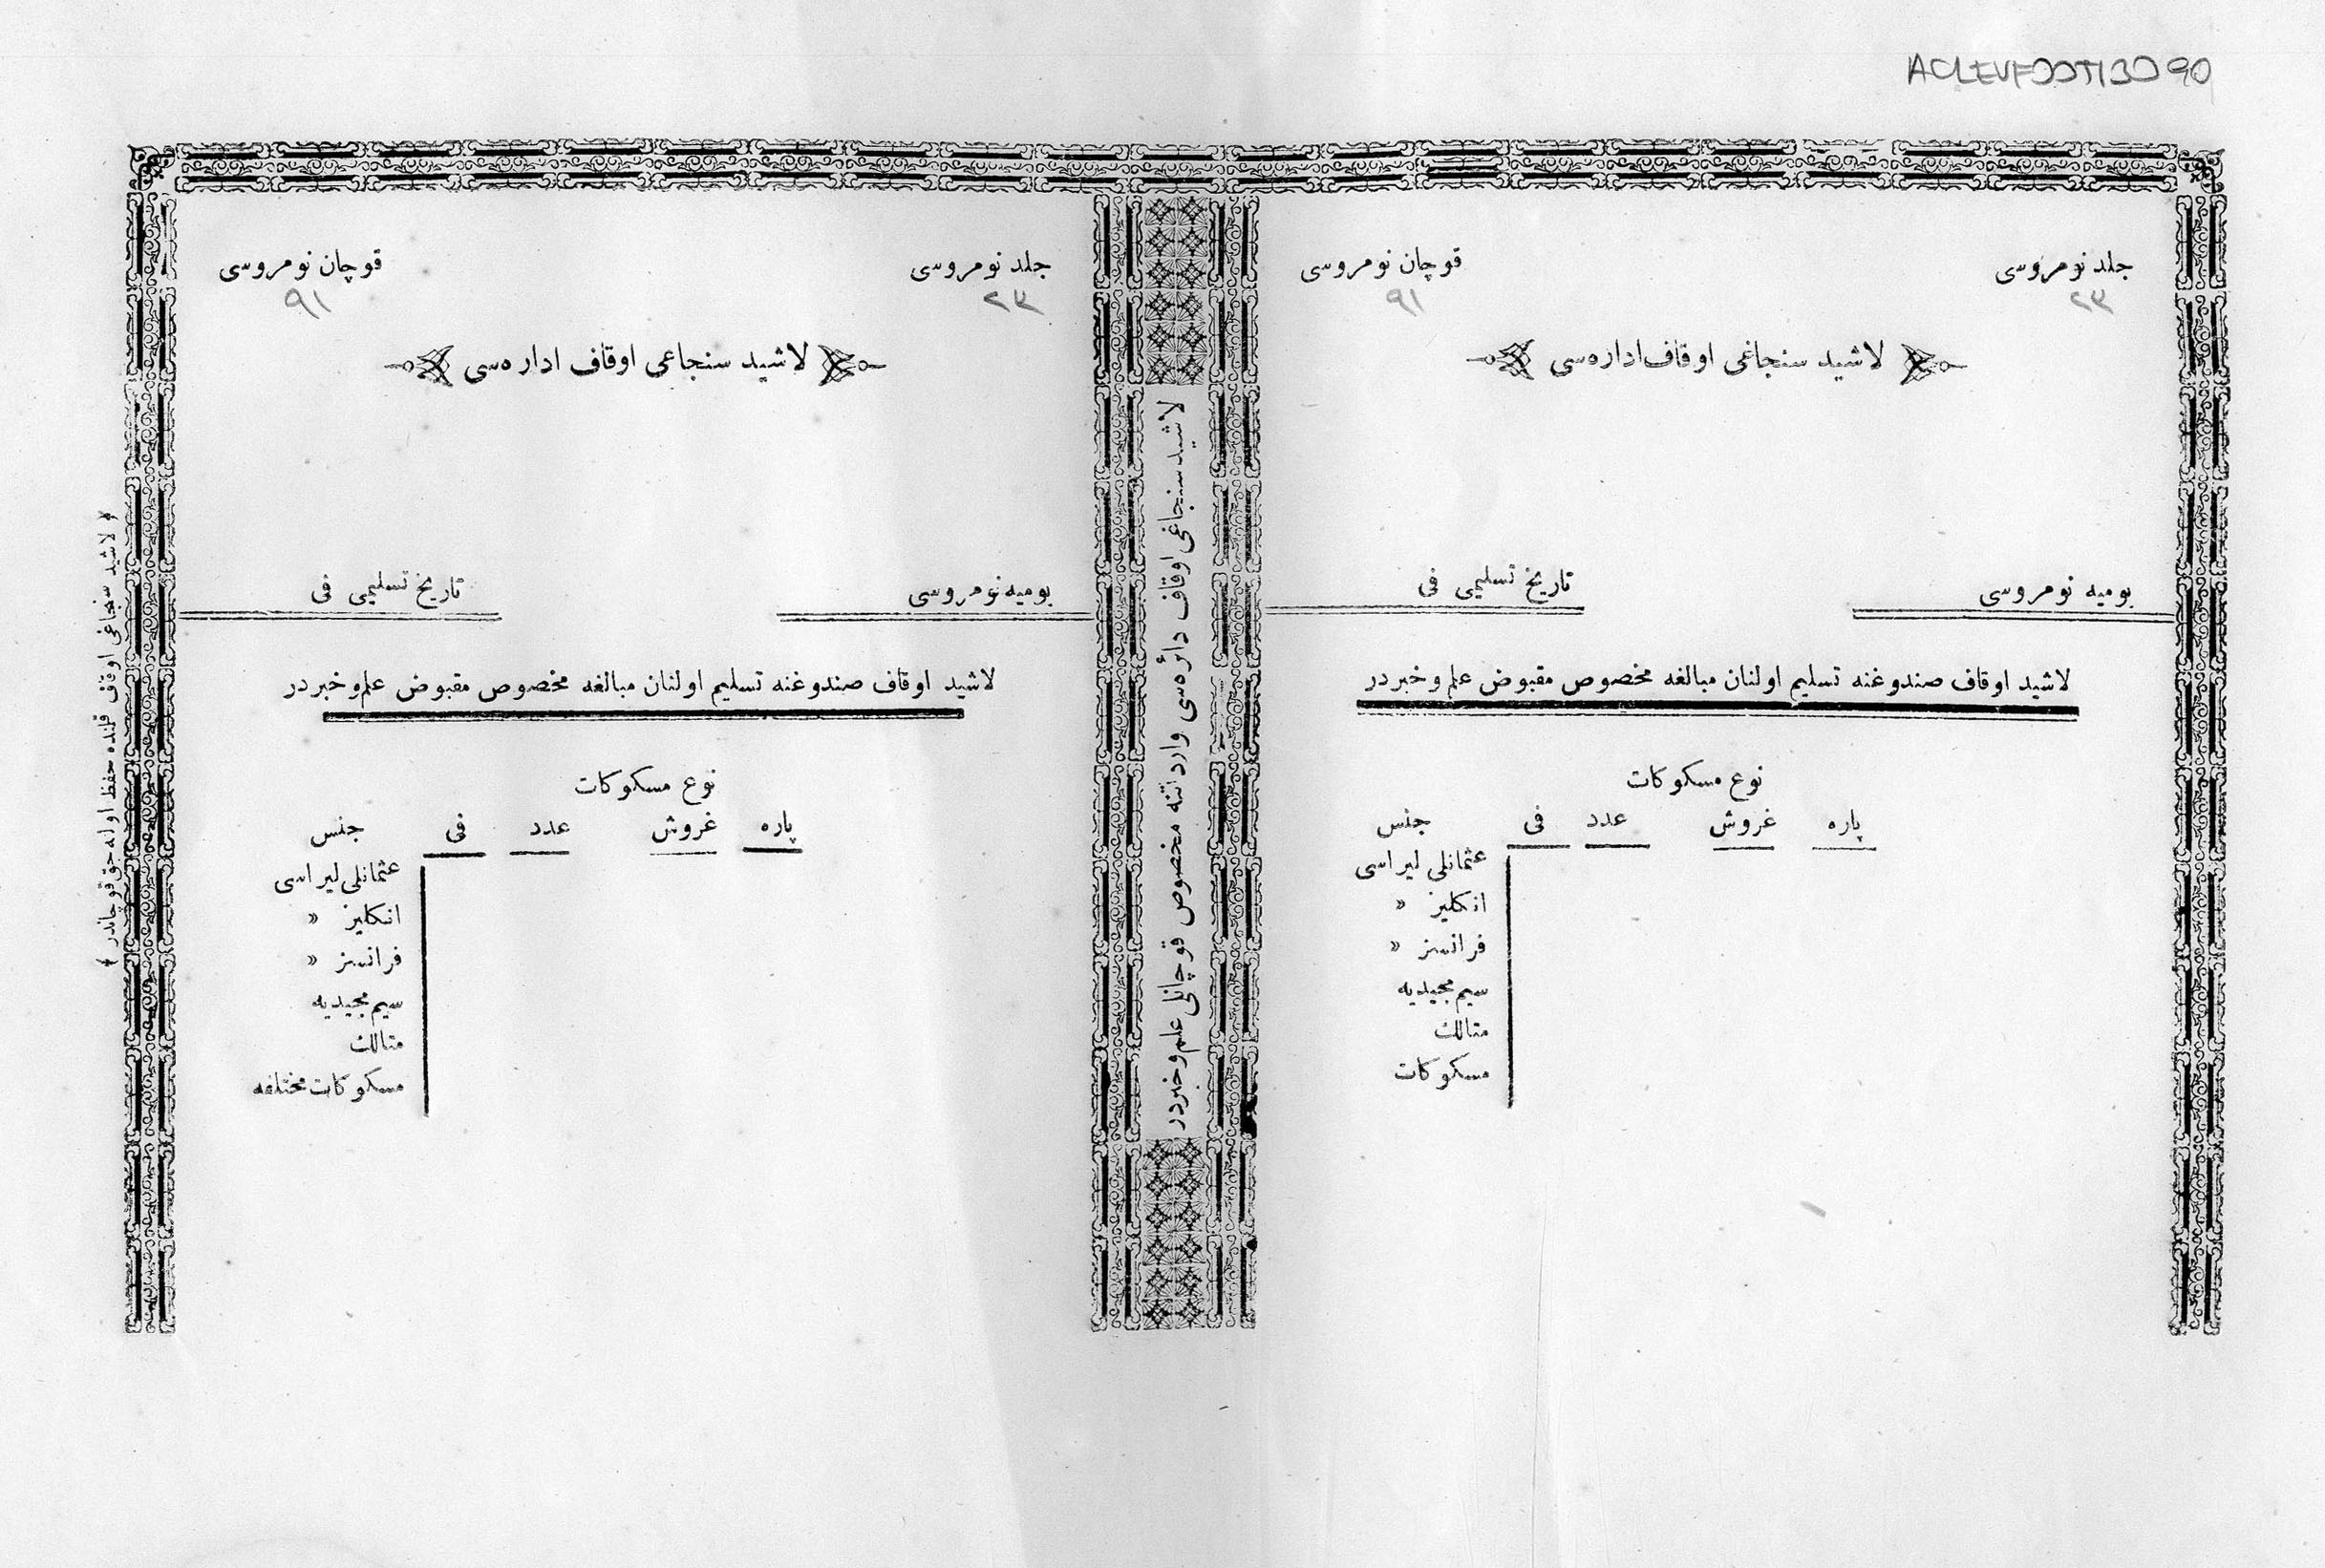 ACLEVF00TI3090
جلد نومروسی
۲۳
قوچان نومروسی
۹۱
لاشید سنجاغی اوقاف اداره‌سی
یومیه نومروسی
تاریخ تسلیمی فی
لاشید اوقاف صندوغنه تسلیم اولنان مبالغه مخصوص مقبوض علم وخبردر
نوع مسکوکات
پاره غروش عدد فی جنس
عثمانلی لیراسی
انکلیز »
فرانسز »
سیم مجیدیه
متالك
مسکوکات
لاشید سنجاغی اوقاف دائره‌سی وارداتنه مخصوص قوچانلی علم وخبردر
جلد نومروسی
۲۳
قوچان نومروسی
۹۱
لاشید سنجاغی اوقاف اداره‌سی
یومیه نومروسی
تاریخ تسلیمی فی
لاشید اوقاف صندوغنه تسلیم اولنان مبالغه مخصوص مقبوض علم وخبردر
نوع مسکوکات
پاره غروش عدد فی جنس
عثمانلی لیراسی
انکلیز »
فرانسز »
سیم مجیدیه
متالك
مسکوکات مختلفه
﴿ لاشید سنجاغی اوقاف قلنده حفظ اوله‌جق قوچاندر ﴾